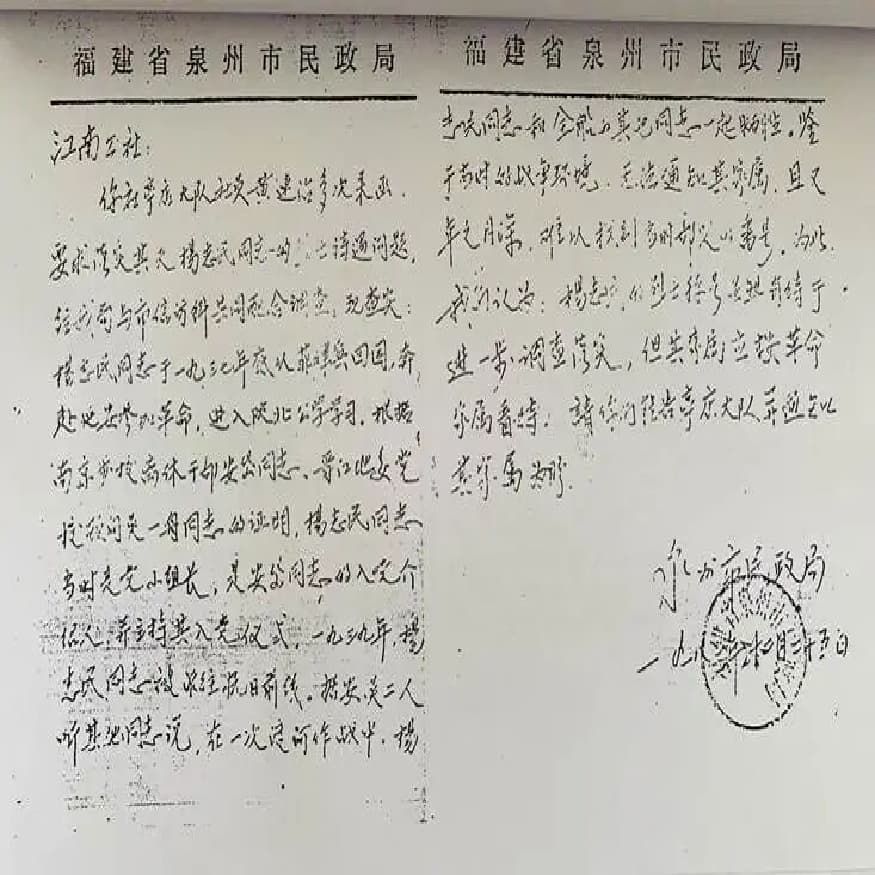 福建省泉州市民政局
江南公社:
你社亭店大队社员黄连治多次来函,
要求落实其父杨志民同志的士待遇问题,
经我局与市信访科共同配合调查,现查实:
杨志民同志于一九三七年底从菲律宾回国,奔
赴延安参加革命,进入陕北公学学习,根据
南京步校离休干部安岱同志、晋江地委党
校顾问吴一舟同志的证明,杨志民同志
当时是党小组长,是安岱同志的入党介
绍人,并主持其入党仪式,一九三九年,杨
志民同志被派往抗日前线。据安吴二人
听其他同志说,在一次渡河作战中,杨
福建省泉州市民政局
志民同志和全船的其他同志一起牺牲。鉴
于当时的战争环境,无法通知其家属,且又
年久月深,难以找到当时部队的番号,为此,
我们认为:杨志民的烈士称号虽然有待于
进一步调查落实,但其家属应按革命
家属看待;请你们转告亭店大队并通知
其家属为盼。
泉州市民政局